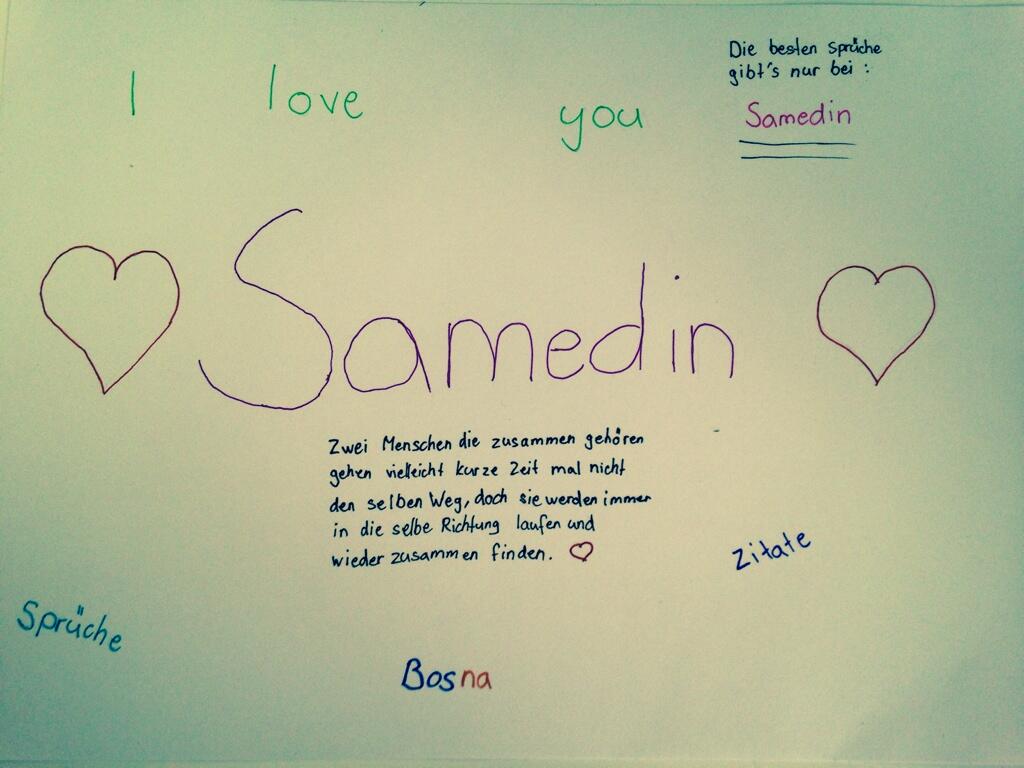 I love you
Die besten Sprüche
gibt's nur bei :
Samedin
Samedin
Zwei Menschen die zusammen gehören
gehen vielleicht kurze Zeit mal nicht
den selben Weg, doch sie werden immer
in die selbe Richtung laufen und
wieder zusammen finden. ♡
Zitate
Sprüche
Bosna